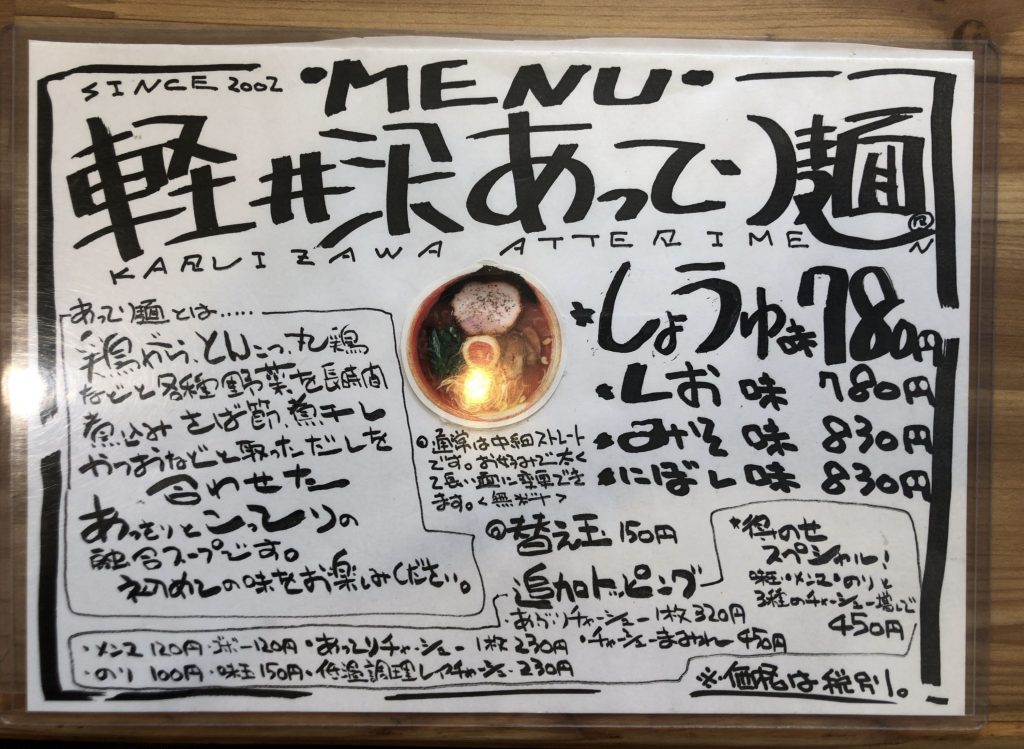 SINCE 2002
・MENU・
軽井沢あってり麺
KARUIZAWA ATTERIMEN
®
あってり麺とは……
鶏がら、とんこつ、丸鶏
などと各種野菜を長時間
煮込み さば節、煮干し
かつおなどと取っただしを
合わせた
あっさりとこってりの
融合スープです。
初めての味をお楽しみください。
◎通常は中細ストレート
です。お好みで太く
て長い麺に変更でき
ます。<無料!>
*しょうゆ味 780円
*しお味 780円
*みそ味 830円
*にぼし味 830円
◎替え玉 150円
追加トッピング
・あぶりチャーシュー 1枚 320円
・メンマ 120円・ゴボー 120円・あってりチャーシュー 1枚 230円・チャーシューまみれ 450円
・のり 100円・味玉 150円・低温調理レアチャーシュー・230円
*得のせ
スペシャル!
味玉・メンマ・のりと
3種のチャーシュー増しで
450円
※価格は税別。